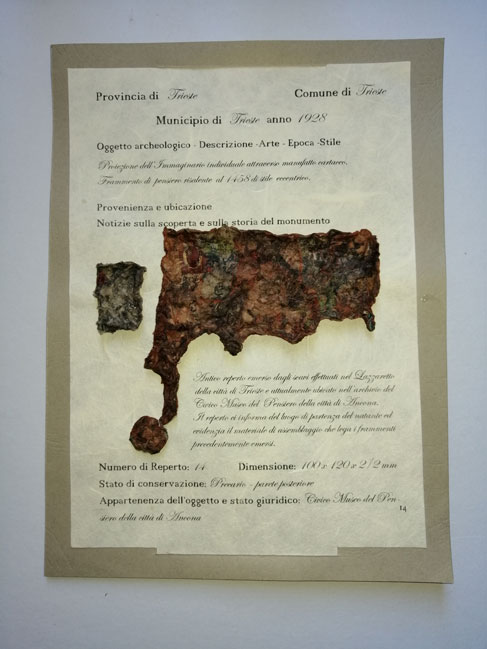 Provincia di Trieste Comune di Trieste
Municipio di Trieste anno 1928
Oggetto archeologico - Descrizione -Arte - Epoca -Stile
Proiezione dell'Immaginario individuale attraverso manufatto cartaceo.
Frammento di pensiero risalente al 1458 di stile eccentrico.
Provenienza e ubicazione
Notizie sulla scoperta e sulla storia del monumento
Antico reperto emerso dagli scavi effettuati nel Lazzaretto
della città di Trieste e attualmente ubicato nell'archivio del
Civico Museo del Pensiero della città di Ancona.
Il reperto ci informa del luogo di partenza del natante ed
evidenzia il materiale di assemblaggio che lega i frammenti
precedentemente emersi.
Numero di Reperto: 14 Dimensione: 100x 120x 2/2 mm
Stato di conservazione: Precario - parete posteriore
Appartenenza dell'oggetto e stato giuridico: Civico Museo del Pen-
siero della città di Ancona
14